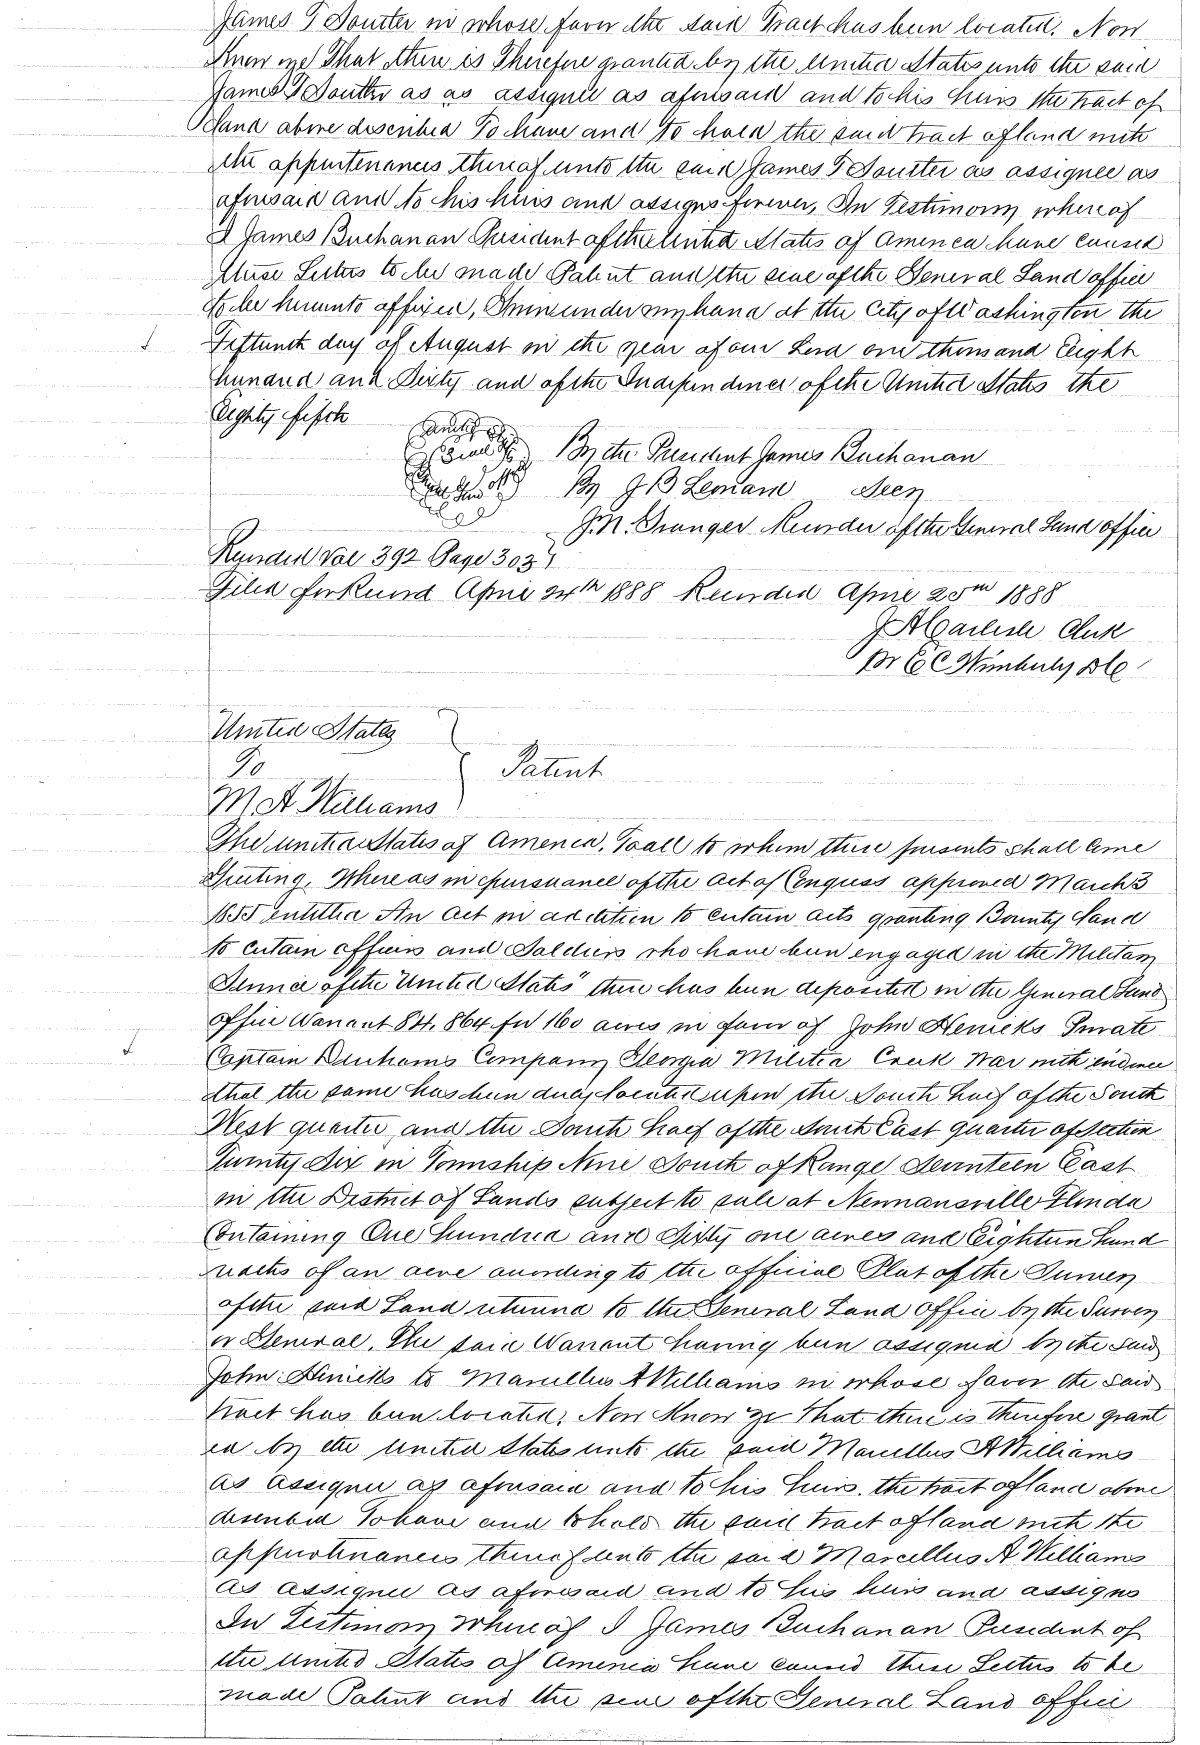 James T Souter in whose favor the said Tract has been located. Now
Know ye That there is Therefore granted by the United States unto the said
James T Souter as as assignee as aforesaid and to his heirs the tract of
land above described To have and to hold the said tract of land with
the appurtenances thereof unto the said James T Souter as assignee as
aforesaid and to his heirs and assigns forever, In Testimony whereof
I James Buchanan President of the United States of America have caused
these Letters to be made Patent and the seal of the General Land office
to be hereunto affixed, Given under my hand at the City of Washington the
Fifteenth day of August in the year of our Lord one thousand Eight
hundred and Sixty and of the Independence of the United States the
Eighty fifth
By the President James Buchanan
By J B Leonard Secy
J. N. Granger Recorder of the General Land office
Recorded Vol 392 Page 303
Filed for Record April 24th 1888 Recorded April 25th 1888
J A Carlisle Clerk
pr E C Wimberly DC
United States
To
Patent
M. A Williams
The United States of America, To all to whom these presents shall come
Greeting, Whereas in pursuance of the Act of Congress approved March 3
1855 entitled An Act in addition to certain acts granting Bounty Land
to certain officers and Soldiers who have been engaged in the Military
Service of the United States" there has been deposited in the General Land
office Warrant 84,864 for 160 acres in favor of John Henicks Private
Captain Denhams Company Georgia Militia Creek War with evidence
that the same has been duly located upon the South half of the South
West quarter and the South half of the South East quarter of section
Twenty Six in Township Nine South of Range Seventeen East
in the District of Lands subject to sale at Newnansville Florida
Containing One hundred and Sixty one acres and Eighteen hund
redths of an acre according to the official Plat of the Survey
of the said Land returned to the General Land office by the Survey
or General. The said Warrant having been assigned by the said
John Henicks to Marcellus A Williams in whose favor the said
tract has been located. Now Know ye That there is therefore grant
ed by the United States unto the said Marcellus A Williams
as assignee as aforesaid and to his heirs. the tract of land above
described To have and to hold the said tract of land with the
appurtinances thereof unto the said Marcellus A Williams
as assignee as aforesaid and to his heirs and assigns
In Testimony Whereof I James Buchanan President of
the United States of America have caused these Letters to be
made Patent and the seal of the General Land office